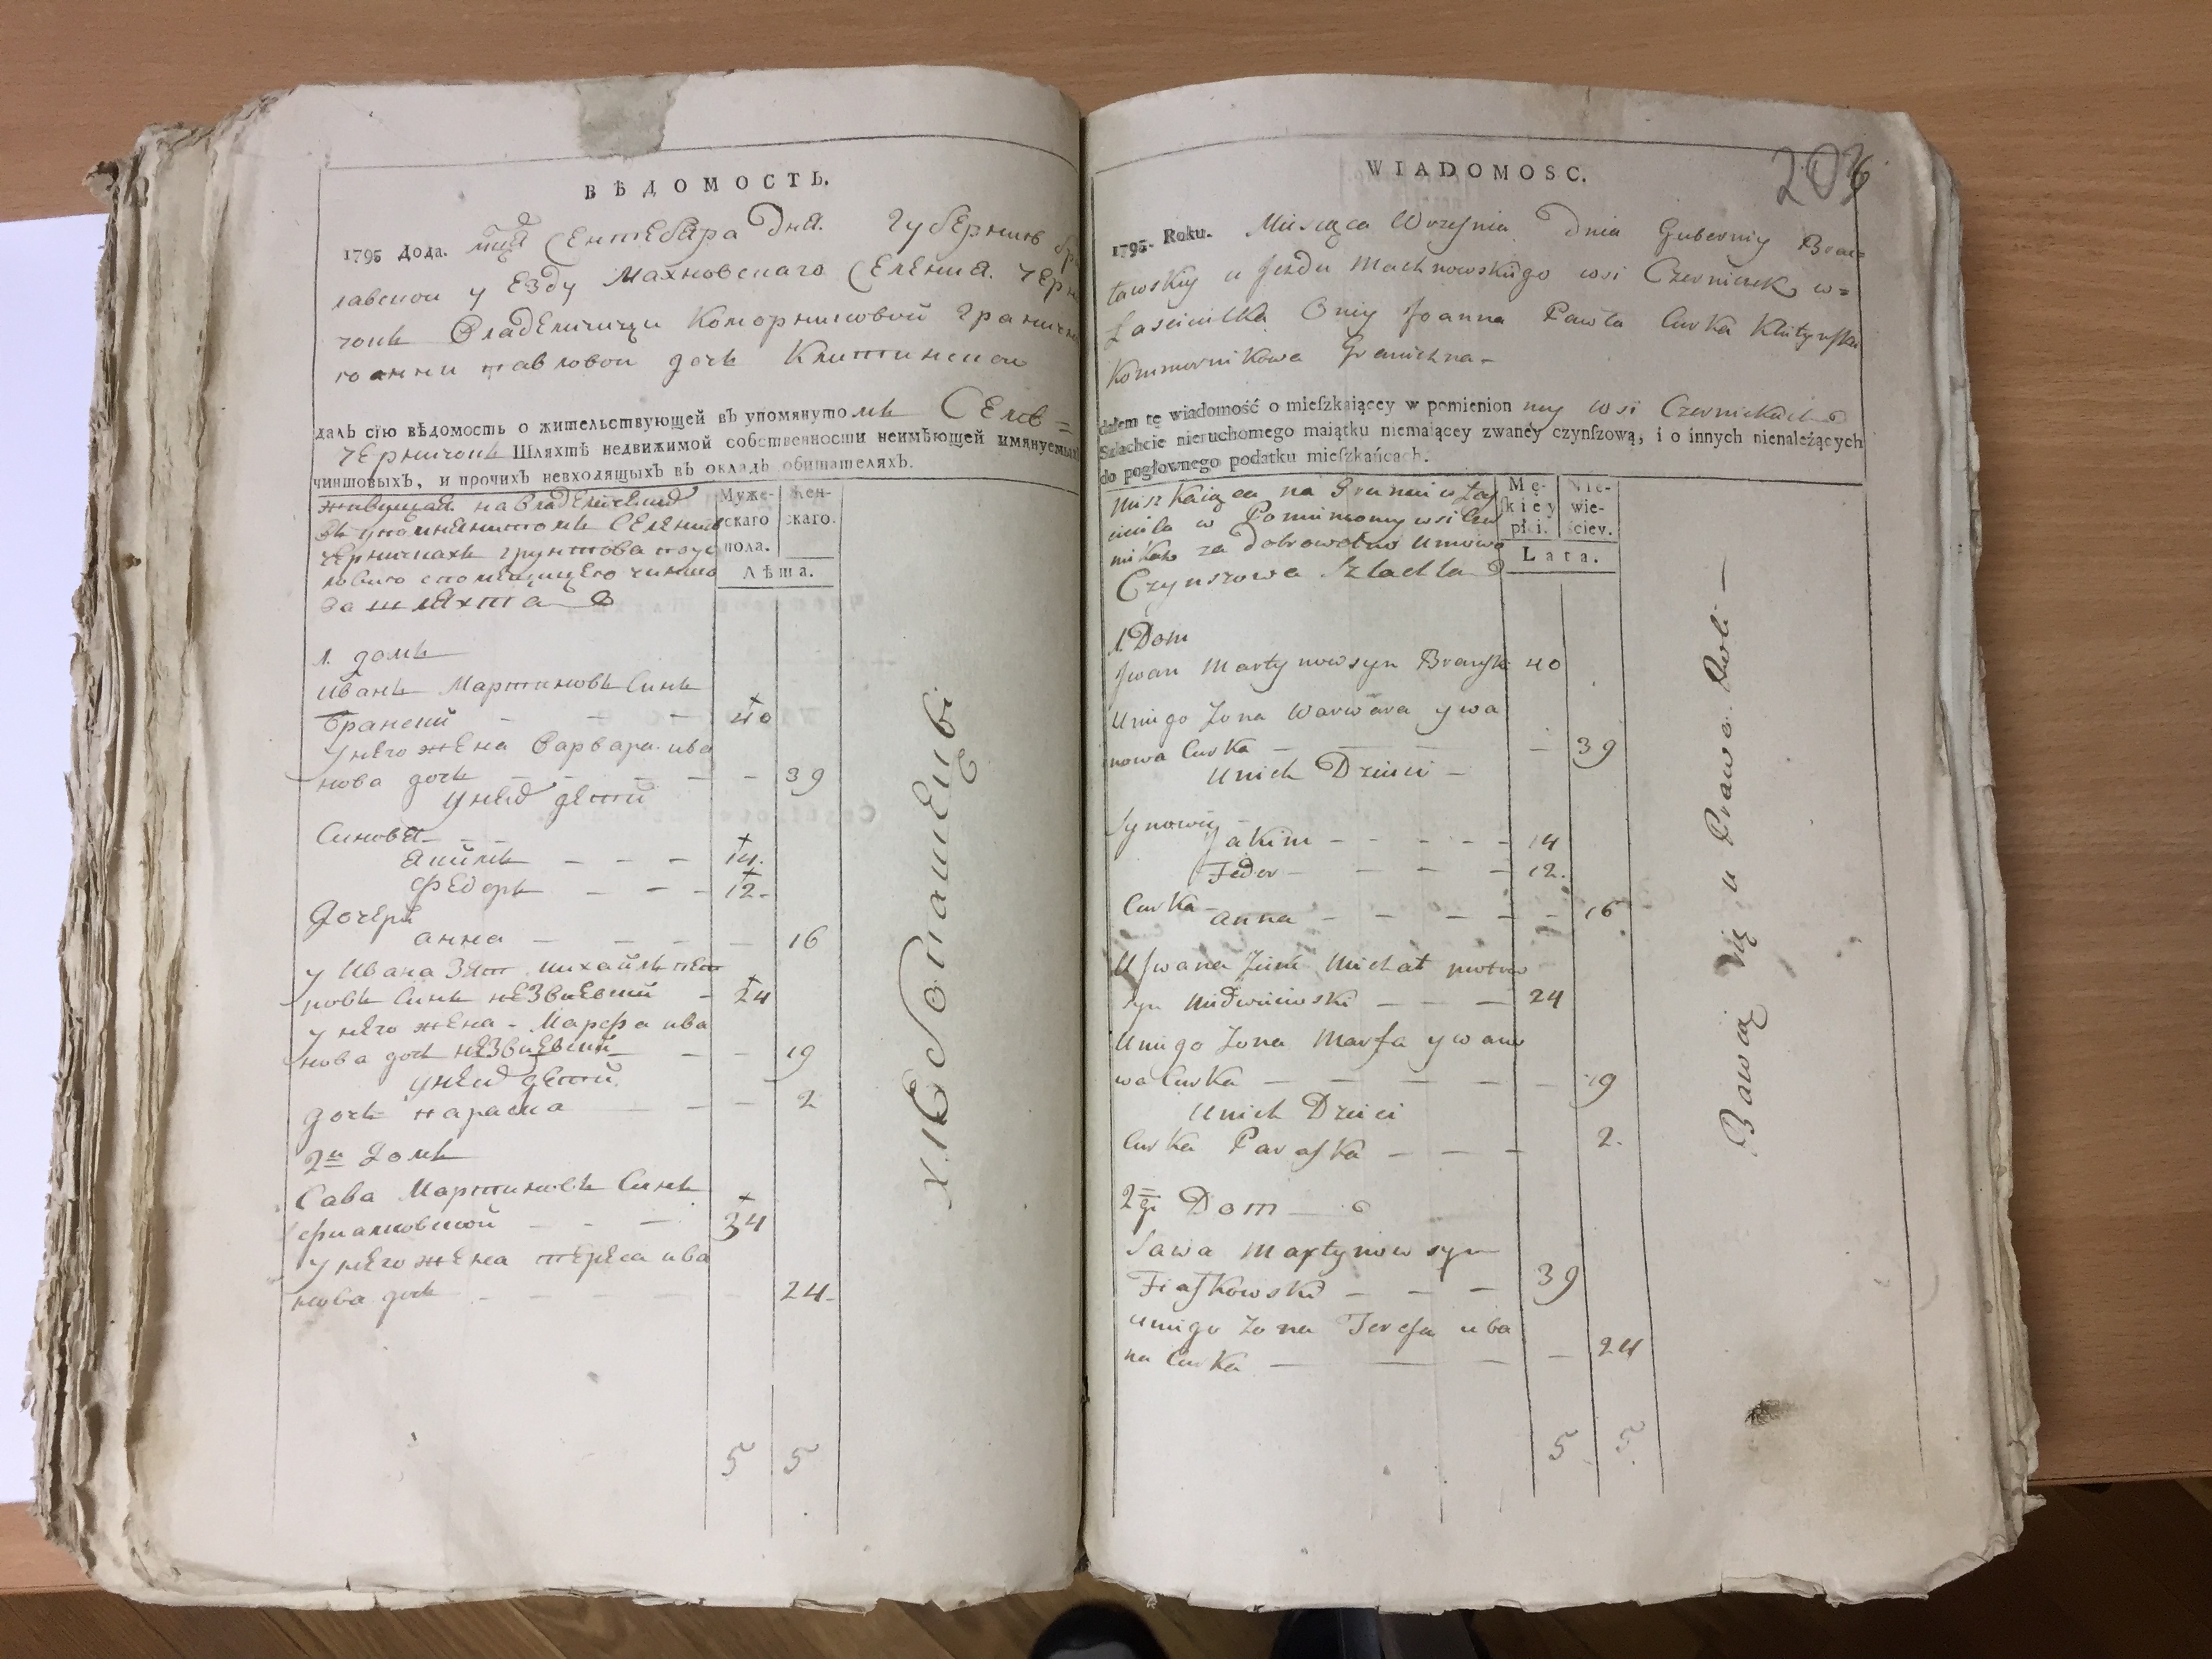 ВѢДОМОСТЬ.
1795 Года. мца Сентебара Дня. Губерниѣ бра
лавской у Езду Махновскаго Селения. Черни
чокъ Владелчици Коморниковой Гранични
иоанни павловои дочь
далъ сїю вѣдомость о жительствующей въ упомянутомъ Селѣ=
Черничокъ Шляхтѣ недвижимой собственности неимѣющей имянуемых
чиншовыхъ, и прочихъ невходящыхъ въ окладъ обитателяхъ.
живущая на
въ упомянитомъ Селении
Черничкахъ грунтова
чиншо
ва шляхта
Муже-
скаго
пола.
Жен-
скаго.
Лѣта.
1. домъ
Иванъ Мартиновъ Синъ
Бранский - - - 40
У него жена Варвара ива
нова дочъ - - - 39
У нихъ дети
Синовѣя - -
Якимъ - - - 14.
Федоръ - - - 12-
Дочерь
анна - - - 16
У Ивана Зят Михайлъ пет
ровъ Синъ - 24
у него жена - Марфа ива
нова дочъ - - 19
У нихъ дети
дочъ параска - - - 2
2й Домъ
Сава Мартиновъ Синъ
фиалковский - - - 34
У него жена тереса ива
нова дочъ - - - 24-
5 5
WIADOMOSC.
206
1795. Roku. Miesiąca Wrzesnia Dnia Gubernij Brac=
ławskiy u Jezdu Machnowskiego wsi Czerniczek w=
Łascicielka Joanna Pawła Curka
Kommornikowa Graniczna-
dałem tę wiadomość o mieſzkaiącey w pomienion ney wsi Czerniczkach
Szlachcie nieruchomego maiątku niemaiącey zwaney czynſzową, i o innych nienależących
do pogłownego podatku mieſzkańcach.
Miszkaiąca na Gruncie Las
ciciela w Pomienioney wsi Czer
nikach za dobrowolno Umowo
Czynszowa Szlachta
Mę-
ſkiey
płci.
Nie-
wie-
ściey.
Lata.
1. Dom
Jwan Martynow syn Bransk 40
Uniego Zona Warwara ywa
nowa Curka - - - 39
Unich Dzieci -
Synowiy -
Jakim - - - - - 14
Fedor - - - - 12.
Curka -
anna - - - - - 16
U Jwana Zienc Michał piotrow
syn - - - 24
Uniego Zona Marfa ywano
wa Curka - - - - - 19
Unich Dzieci
Curka Paraſka - - - 2.
2gi Dom -
Sawa Martynow syn
Fiałkowski - - - 39
uniego Zona Tereſa uba
na Curka - - - - 24
5 5
Bawią się u Prawa Roli -